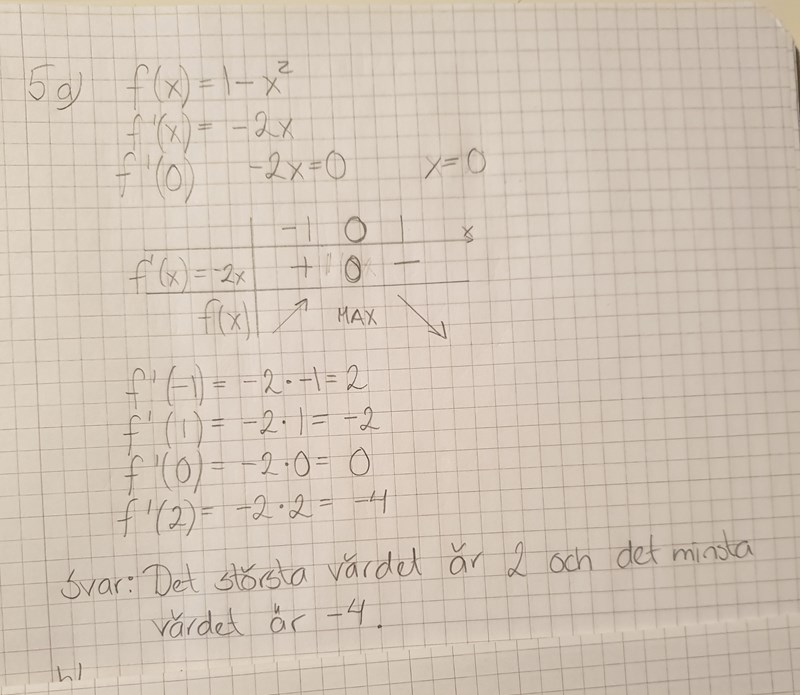 5a) f(x) = 1 - x²
f'(x) = -2x
f'(0) -2x = 0 x = 0
-1 0 1 x
f'(x) = -2x + 0 -
f(x) ↗ MAX ↘
f'(-1) = -2 · -1 = 2
f'(1) = -2 · 1 = -2
f'(0) = -2 · 0 = 0
f'(2) = -2 · 2 = -4
Svar: Det största värdet är 2 och det minsta
värdet är -4.